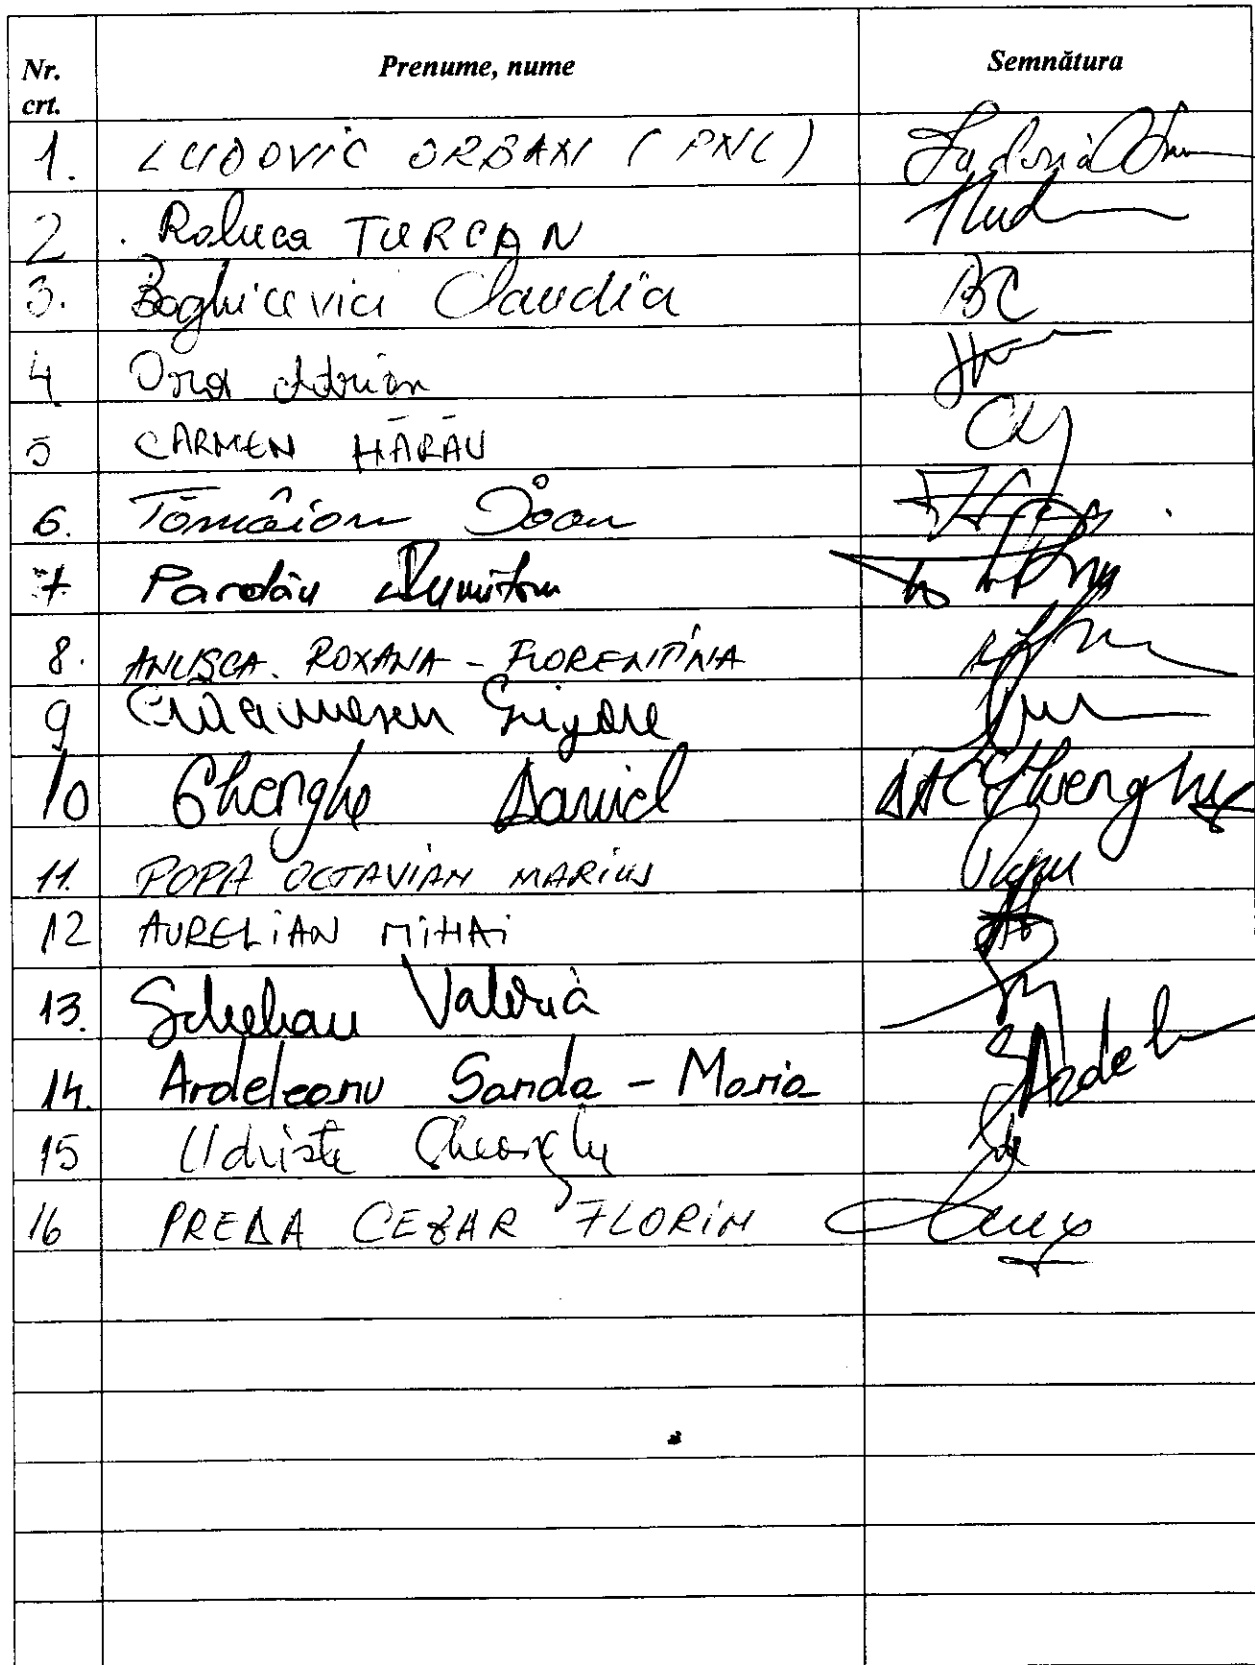 Nr. crt. Prenume, nume Semnătura
1. LUDOVIC ORBAN (PNL) Ludovic
2. Raluca TURCAN
3. Boghicevici Claudia BC
4 Adrian
5 CARMEN HĂRĂU
6. Tămâian Ioan
7 Pardău Dumitru
8. ANUSCA ROXANA - FLORENTINA
9 Crăciunescu Grigore
10 Gherghe Daniel Gherghe
11. POPA OCTAVIAN MARIUS Popa
12 AURELIAN MIHAI
13. Schelean Valeria
14. Ardeleanu Sanda - Maria SArdel
15 Udriște Gheorghe
16 PREDA CEZAR FLORIN